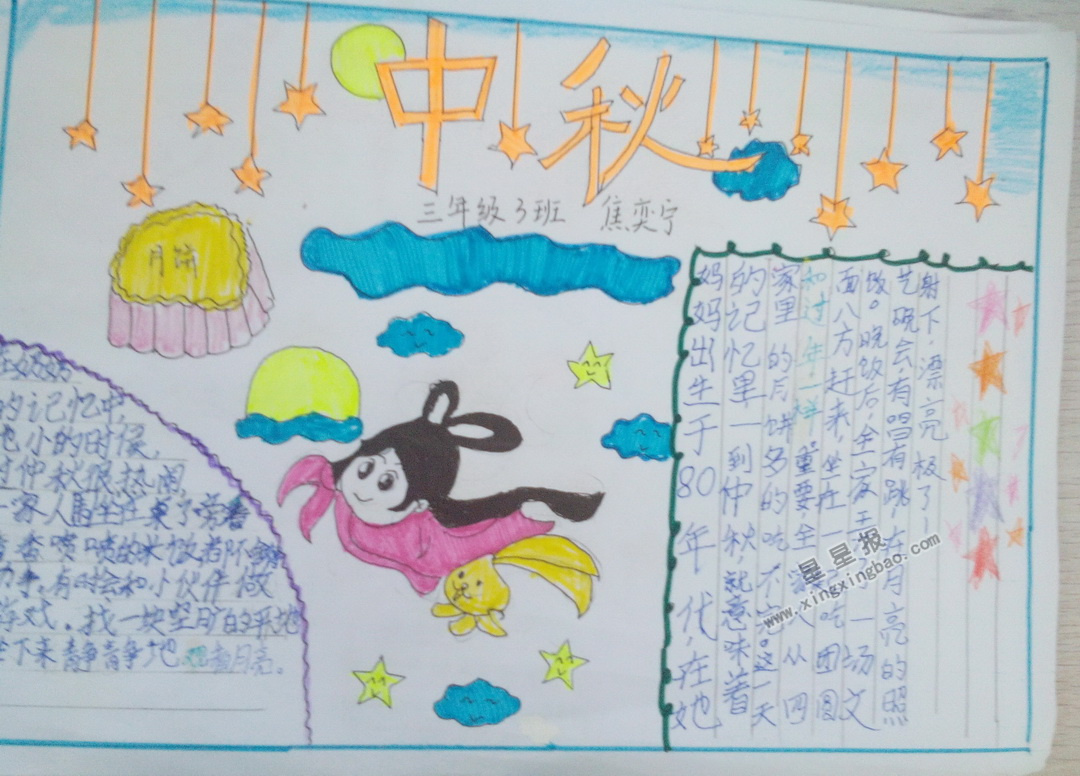 中秋
三年级3班 焦奕宁
月饼
的记忆中,
小的时候,
仲秋很热闹,
家人围坐在桌子旁
喷喷的米饭都
有时会和小伙伴做
游戏。找一块空旷的平地
下来静静地观看月亮。
妈妈出生于80年代,在她
的记忆里一到仲秋就意味着
家里的月饼多的吃不完。这一天
和过年一样。重要全 从四
面八方赶来,坐在一 吃团圆
饭。晚饭后,全家 一场文
艺晚会,有唱有跳在月亮的照
射下,漂亮极了!
星星报
www.xingxingbao.com